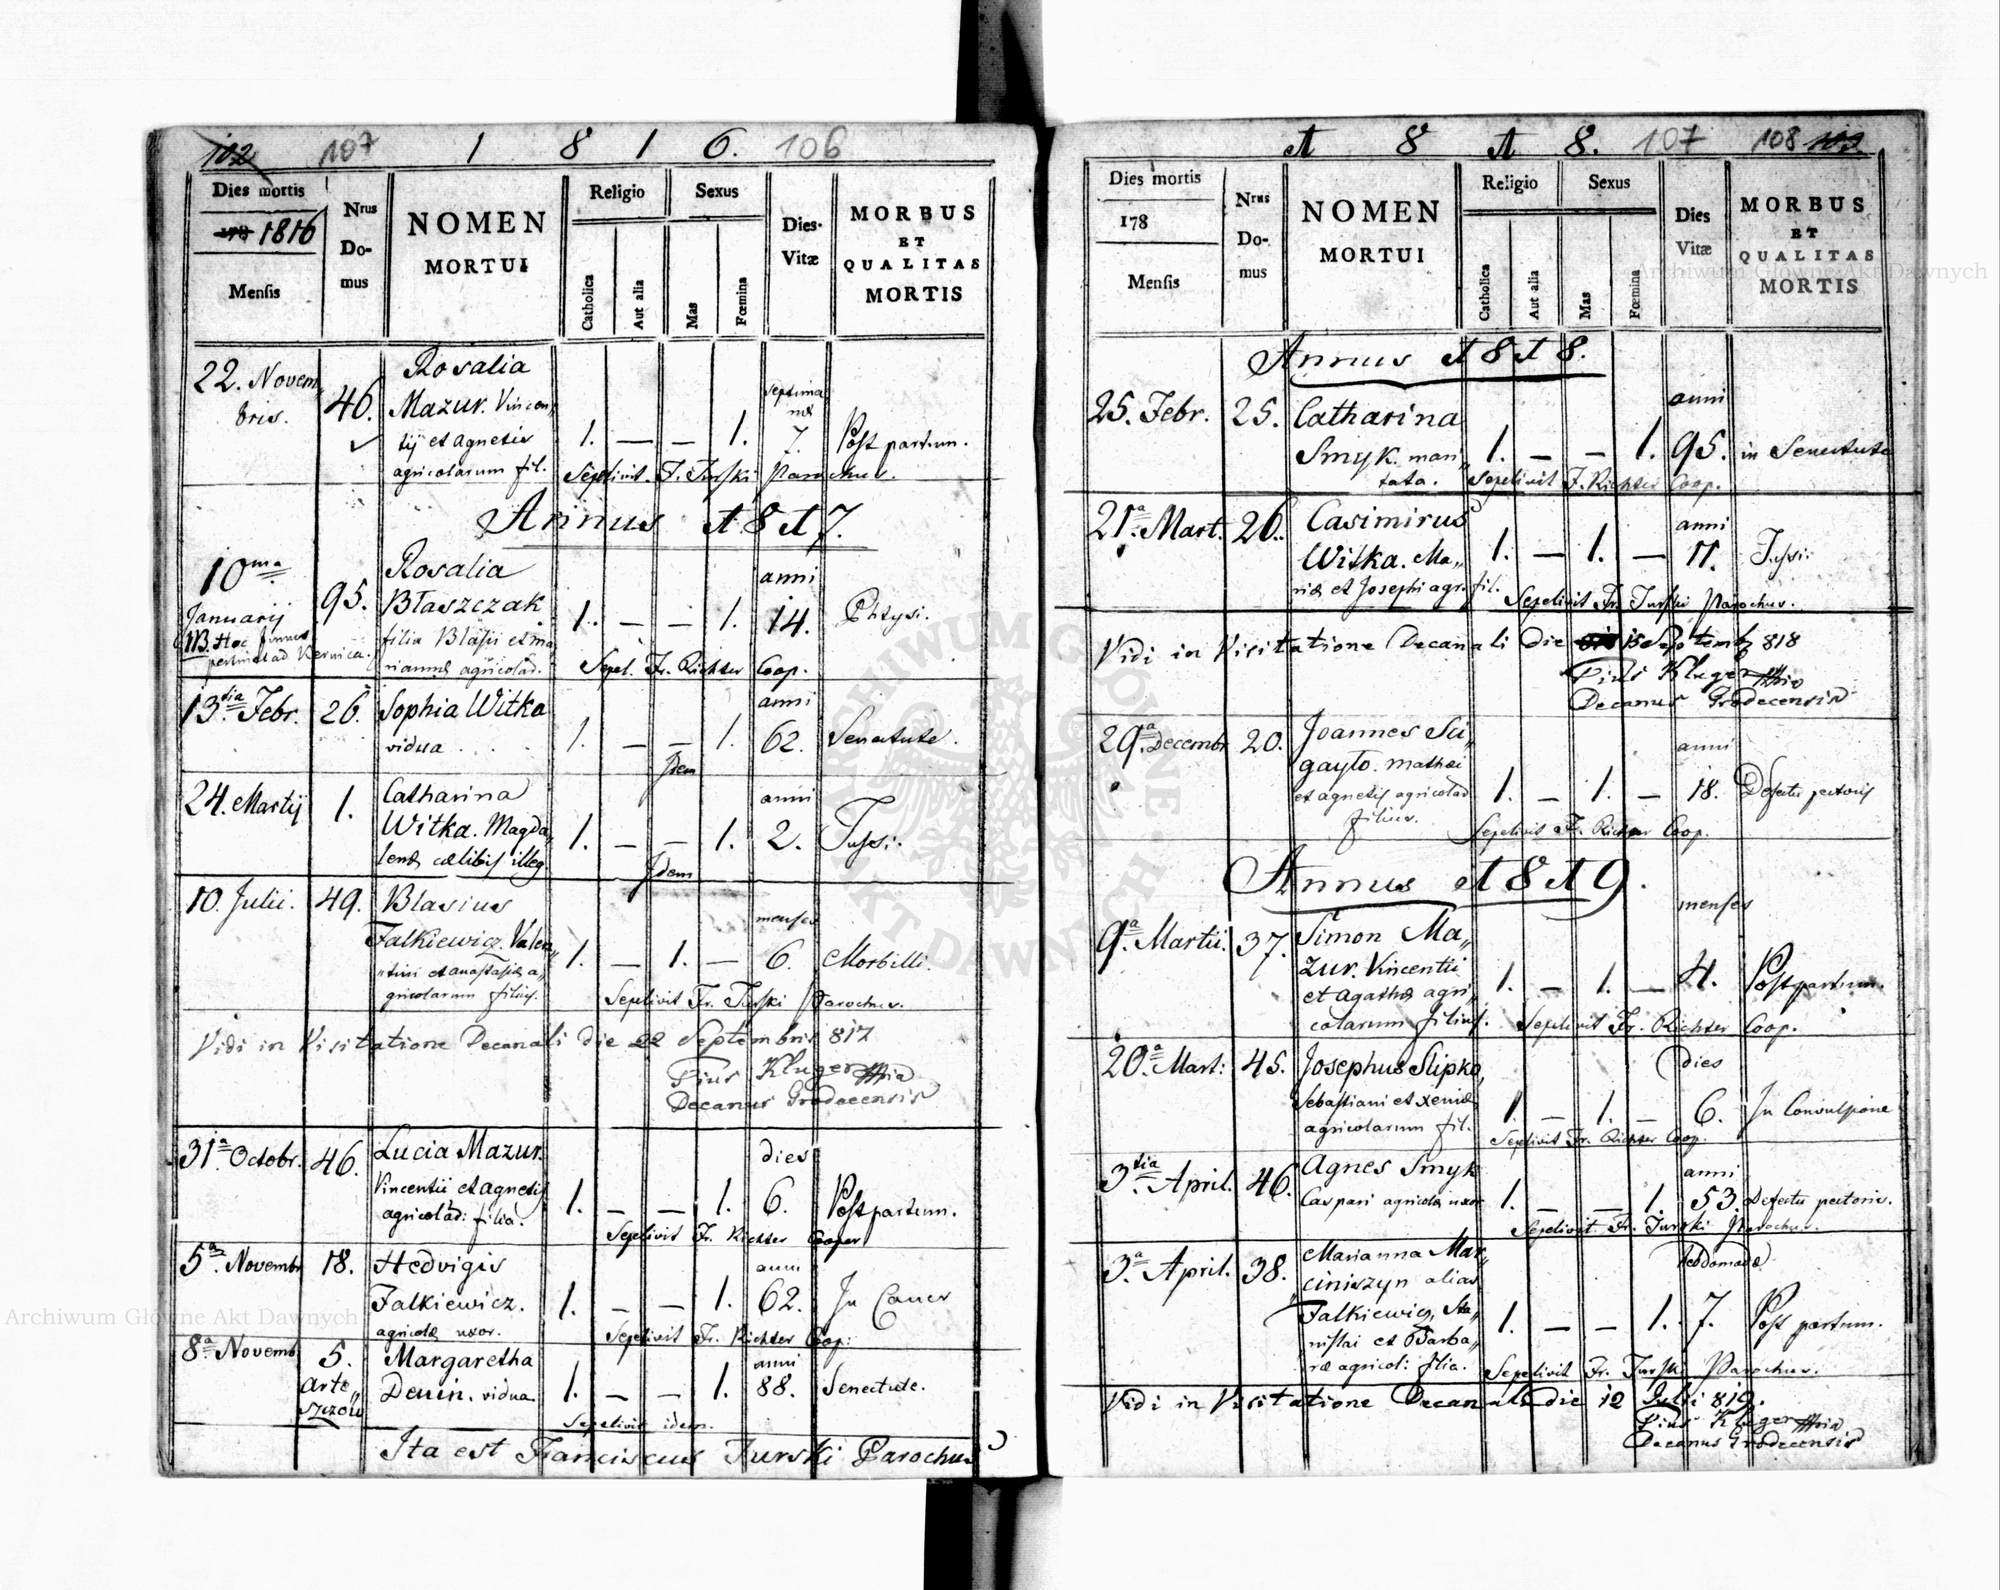 102 107 1 8 1 6. 106
Dies mortis
178 1816
Mensis
Nrus
Do-
mus
NOMEN
MORTUI
Religio
Catholica
Aut alia
Sexus
Mas
Fœmina
Dies
Vitæ
MORBUS
ET
QUALITAS
MORTIS
22. Novem„
bris.
46.
Rosalia
Mazur. Vincen„
tij et Agnetis
agricolarum fil.
1. — — 1.
septima
næ
7.
Post partum.
Sepelivit F. Turski Parochus.
Annus 1817.
10ma
Januarij
NB. Hoc funus
pertinet ad Kernica.
95.
Rosalia
Błaszczak
filia Blasii et Ma„
riannæ agricolar.
1. — — 1.
anni
14.
Phtysi.
Sepel. Fr. Richter Coop.
13tia Febr.
26.
Sophia Witka
vidua
1. — — 1.
anni
62.
Senectute.
Idem
24. Martij
1.
Catharina
Witka. Magda„
lenæ cœlibis illeg.
1. — — 1.
anni
2.
Tussi.
Idem
10. Julii.
49.
Blasius
Falkiewicz. Valen„
„tini et Anastasiæ a„
gricolarum filius.
1. — 1. —
menses
6.
Morbilli.
Sepelivit Fr. Turski Parochus.
Vidi in Visitatione Decanali die 22 Septembris 817
Pius Kluger
Decanus Grodecensis
31a Octobr.
46.
Lucia Mazur.
Vincentii et Agnetis
agricolar: filia.
1. — — 1.
dies
6.
Post partum.
Sepelivit Fr. Richter Cooper
5a Novembr
18.
Hedvigis
Falkiewicz.
agricolæ uxor.
1. — — 1.
anni
62.
In Cancr
Sepelivit Fr. Richter Coop:
8a Novemb.
5.
Arte„
szczow
Margaretha
Denin. vidua.
1. — — 1.
anni
88.
Senectute.
Sepelivit idem.
Ita est Franciscus Turski Parochus
1 8 1 8. 107 108 103
Dies mortis
178
Mensis
Nrus
Do-
mus
NOMEN
MORTUI
Religio
Catholica
Aut alia
Sexus
Mas
Fœmina
Dies
Vitæ
MORBUS
ET
QUALITAS
MORTIS
Annus 1818.
25. Febr.
25.
Catharina
Smyk. mari„
tata.
1. — — 1.
anni
95.
in Senectute
Sepelivit F. Richter Coop.
21a Mart.
26.
Casimirus
Witka. Ma„
riæ et Josephi agr. fil.
1. — 1. —
anni
11.
Tussi.
Sepelivit Fr. Turski Parochus.
Vidi in Visitatione Decanali die 15 Septemb 818
Pius Kluger
Decanus Grodecensis
29a Decembr
20.
Joannes Sci„
gayło. Mathæi
et Agnetis agricolar
filius.
1. — 1. —
anni
18.
Defectu pectoris
Sepelivit F. Richter Coop.
Annus 1819.
9a Martii.
37.
Simon Ma„
zur. Vincentii
et Agathæ agri„
colarum filius.
1. — 1. —
menses
4.
Post partum.
Sepelivit Fr. Richter Coop.
20a Mart:
45.
Josephus Slipko,
Sebastiani et Xeniæ
agricolarum fil.
1. — 1. —
dies
6.
In Convulsione
Sepelivit Fr. Richter Coop.
3tia April.
46.
Agnes Smyk
Caspari agricolæ uxor
1. — — 1.
anni
53.
Defectu pectoris.
Sepelivit Fr. Turski Parochus.
3a April.
38.
Marianna Mar„
ciniszyn alias
Falkiewicz, Sta„
nislai et Barba„
ræ agricol: filia.
1. — — 1.
hebdomadæ
7.
Post partum.
Sepelivit Fr. Turski Parochus.
Vidi in Visitatione Decanali die 12 Julii 819.
Pius Kluger
Decanus Grodecensis
Archiwum Główne Akt Dawnych
Archiwum Główne Akt Dawnych
ARCHIWUM GŁÓWNE AKT DAWNYCH